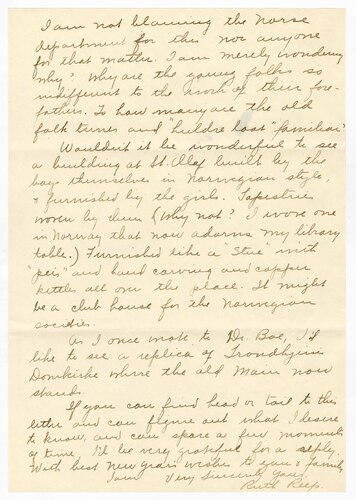 I am not blaming the Norse
department for this nor anyone
for that matter. I am merely wondering
why? Why are the young folks so
indifferent to the work of their fore-
fathers. To how many are the old
folk tunes and "huldre laat" familiar?
Wouldn't it be wonderful to see
a building at St. Olaf built by the
boys themselves in Norwegian style,
& furnished by the girls. Tapestries
woven by them (Why not? I wove one
in Norway that now adorns my library
table.) Furnished like a "Stue" with
"peis" and hand carving and copper
kettles all over the place. It might
be a club house for the Norwegian
societies.
As I once wrote to Dr. Boe, I'd
like to see a replica of Trondhjem
Domkirke where the old Main now
stands.
If you can find head or tail to this
letter and can figure out what I desire
to know, and can spare a few moments
of time, I'll be very grateful for a reply.
With best New Year wishes to you & family
I am Very Sincerely Yours
Ruth